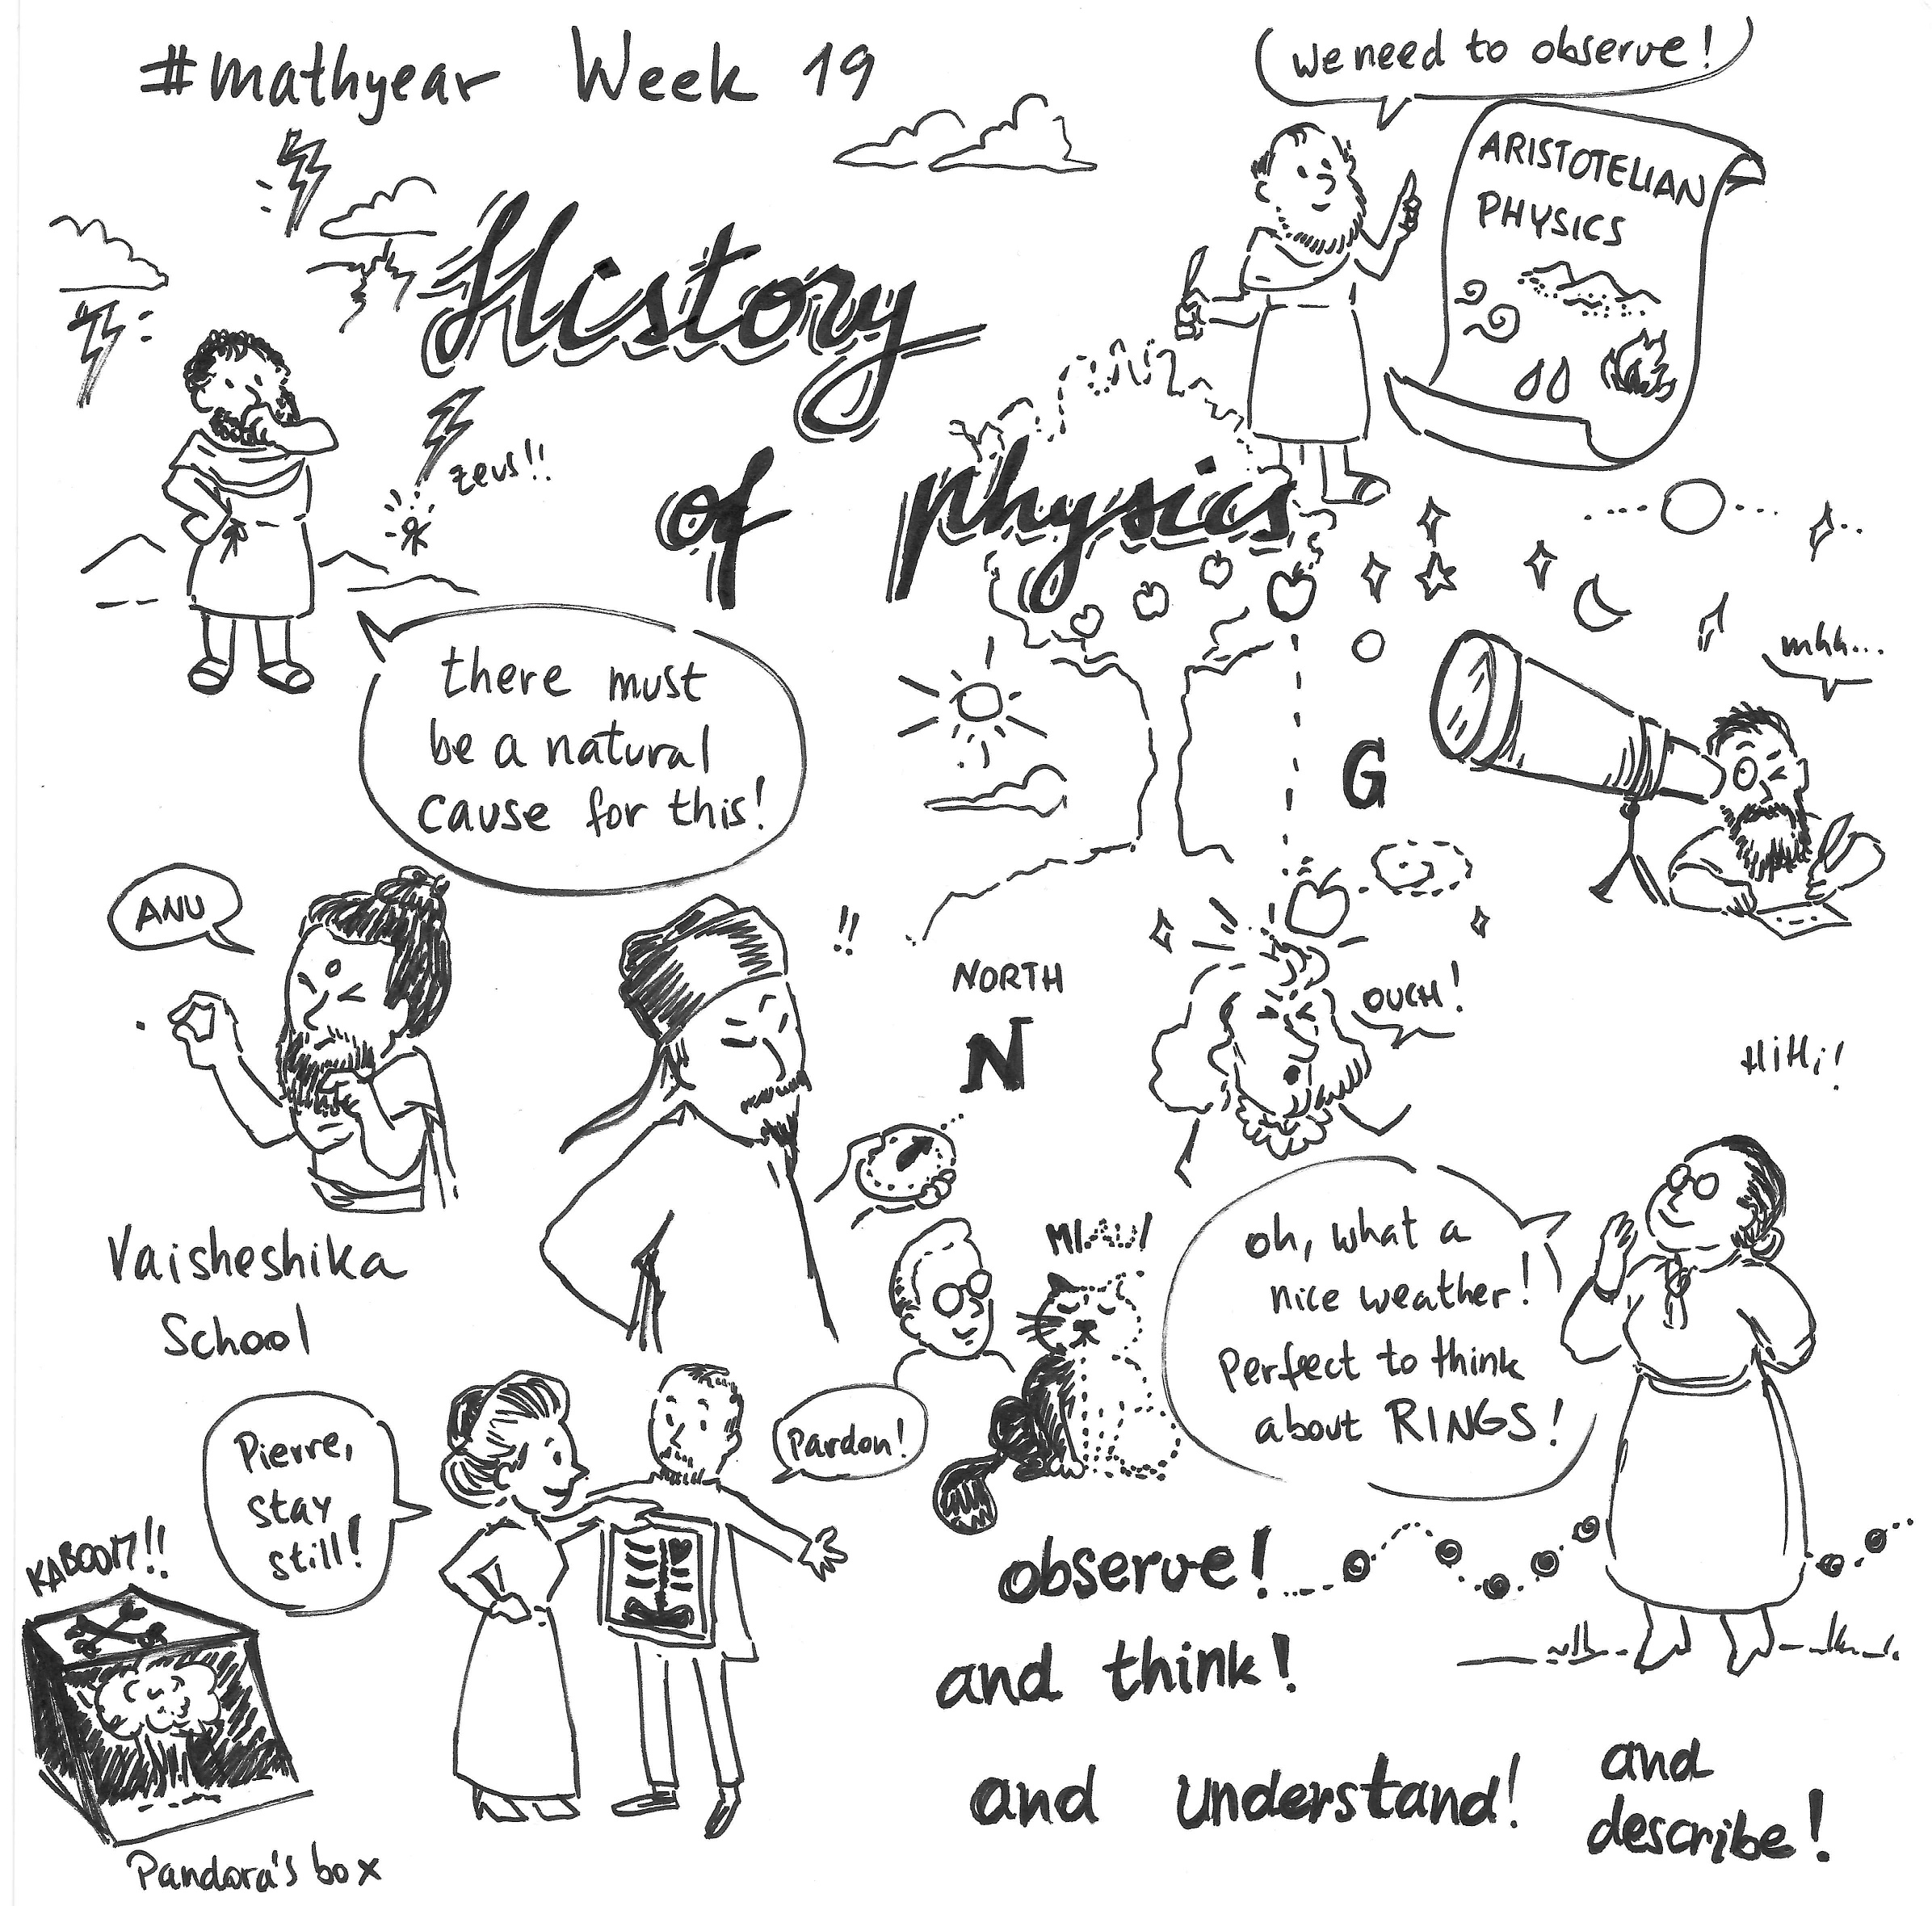 #mathyear Week 19
we need to observe!
ARISTOTELIAN
PHYSICS
History
of physics
zeus!!
there must
be a natural
cause for this!
mhh...
G
ANU
!!
NORTH
N
OUCH!
HiHi!
Vaisheshika
School
MIAU!
oh, what a
nice weather!
Perfect to think
about RINGS!
Pierre,
stay
still!
Pardon!
KABOOM!!
Pandora's box
observe!
and think!
and understand!
and
describe!